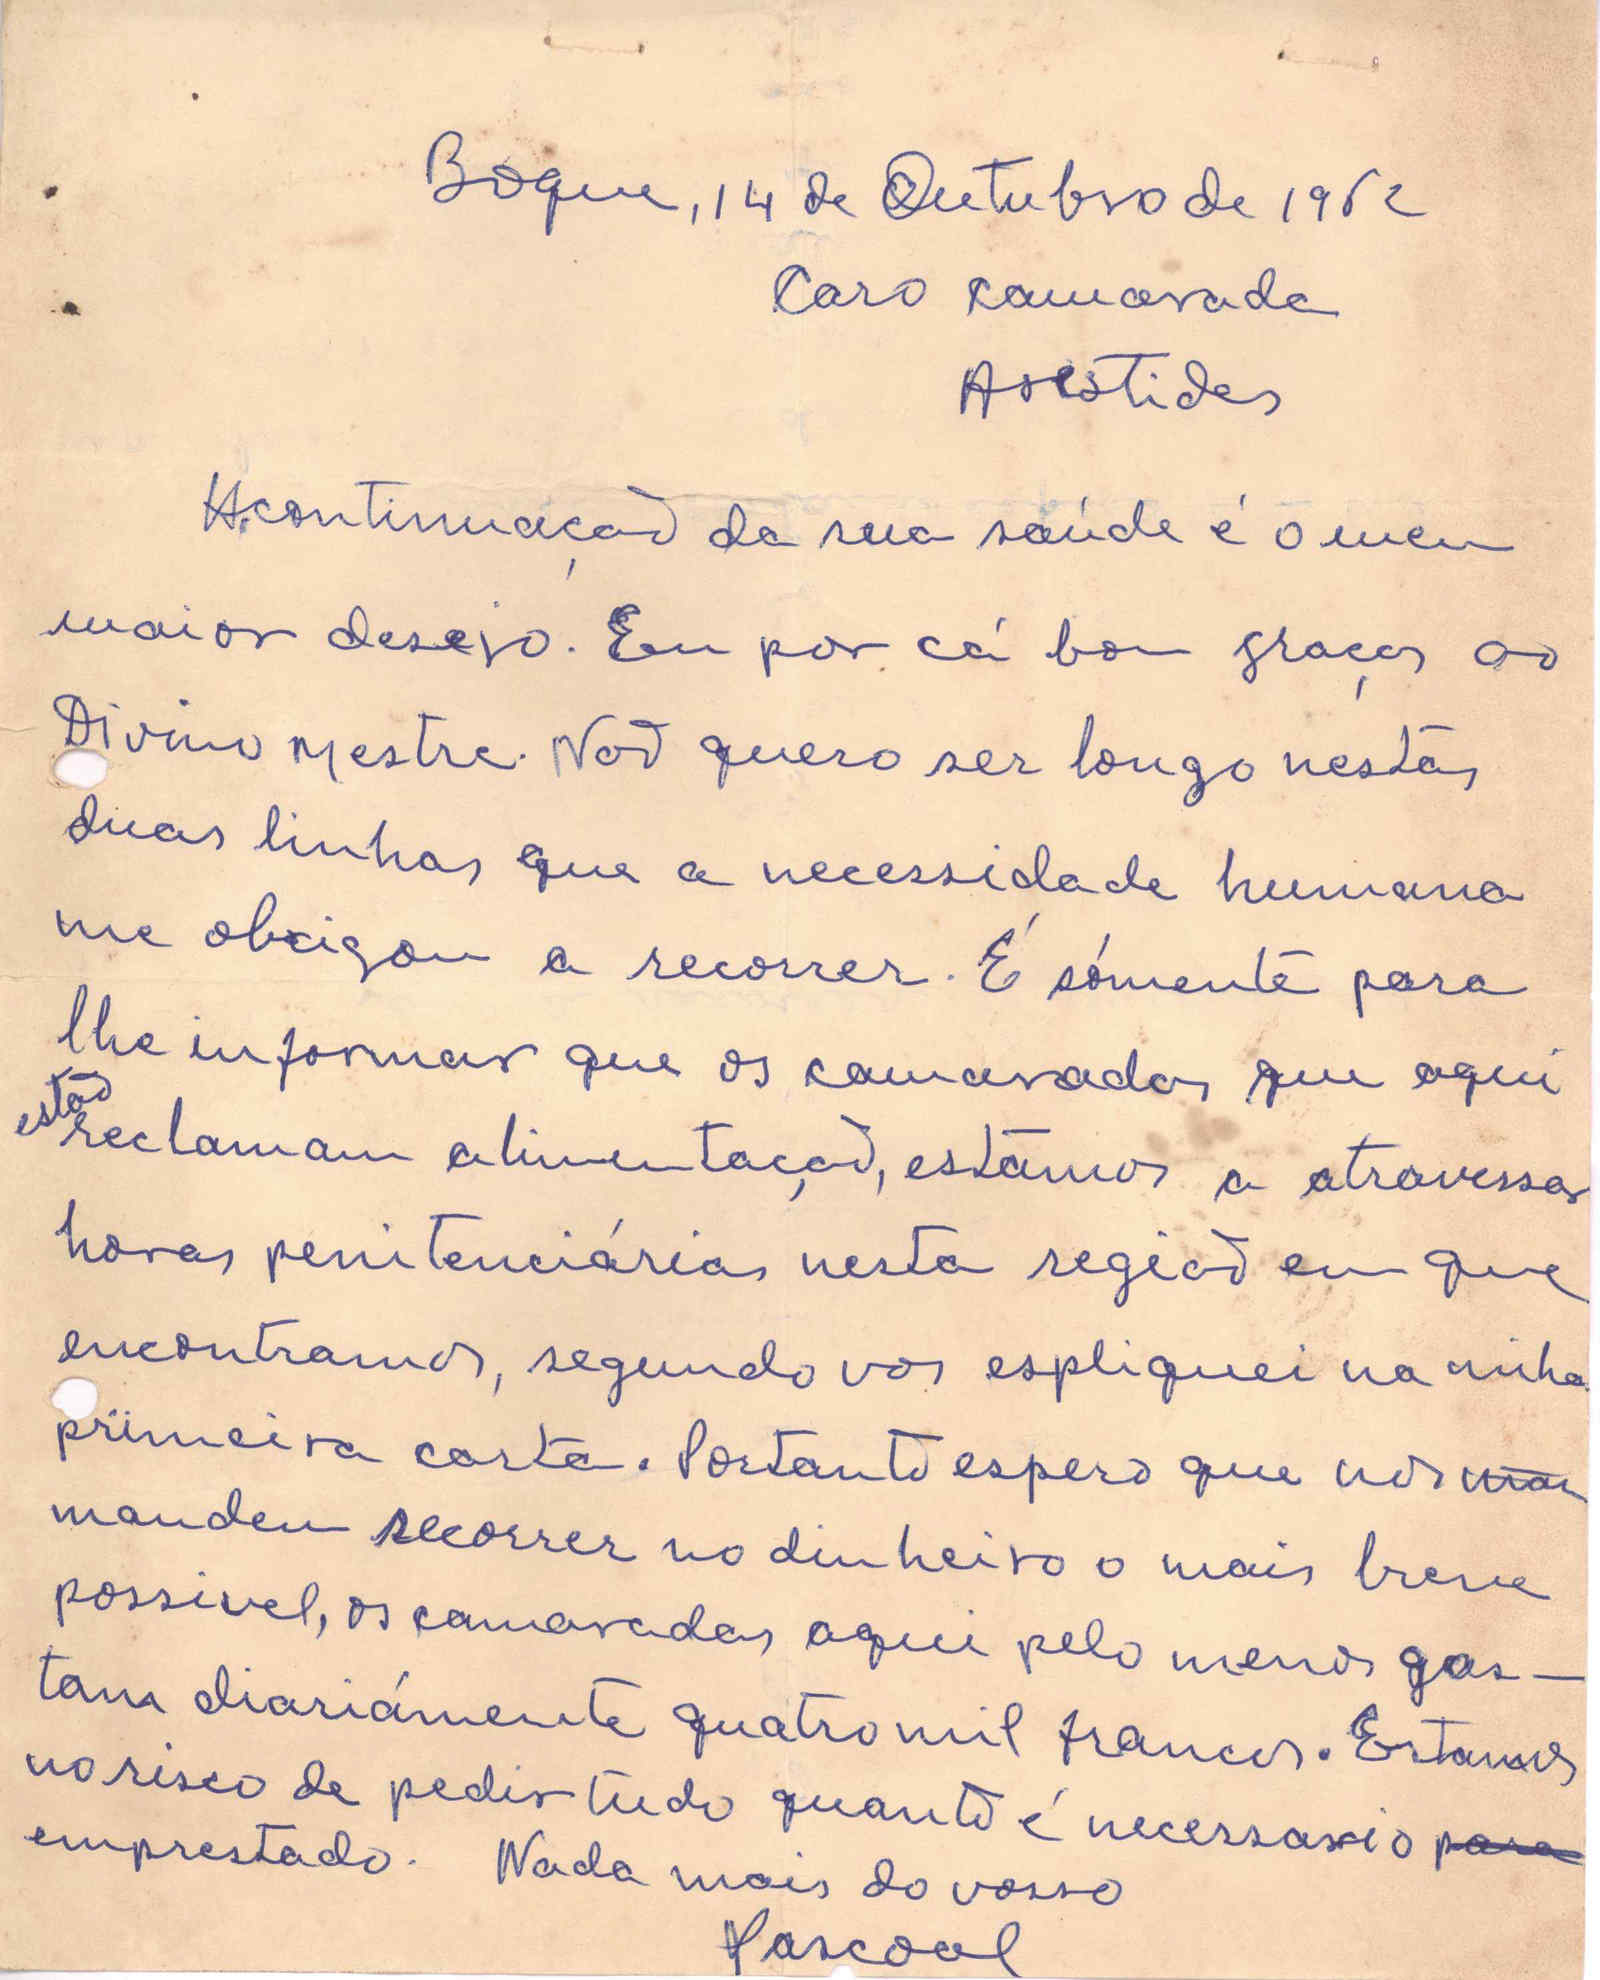 Boque, 14 de Outubro de 1962
Caro camarada
Arestides
A continuação da sua saúde é o meu
maior desejo. Eu por cá bom graças ao
Divino Mestre. Não quero ser longo nestas
duas linhas que a necessidade humana
me obrigou a recorrer. É sómente para
lhe informar que os camaradas que aqui
estão
reclamam alimentação, estamos a atravessar
horas penitenciárias nesta região em que
encontramos, segundo vos espliquei na minha
primeira carta. Portanto espero que nos man
mandem recorrer no dinheiro o mais breve
possivel, os camaradas aqui pelo menos gas-
tam diariámente quatro mil francos. Estamos
no risco de pedir tudo quanto é necessario para
emprestado. Nada mais do vosso
Pascoal